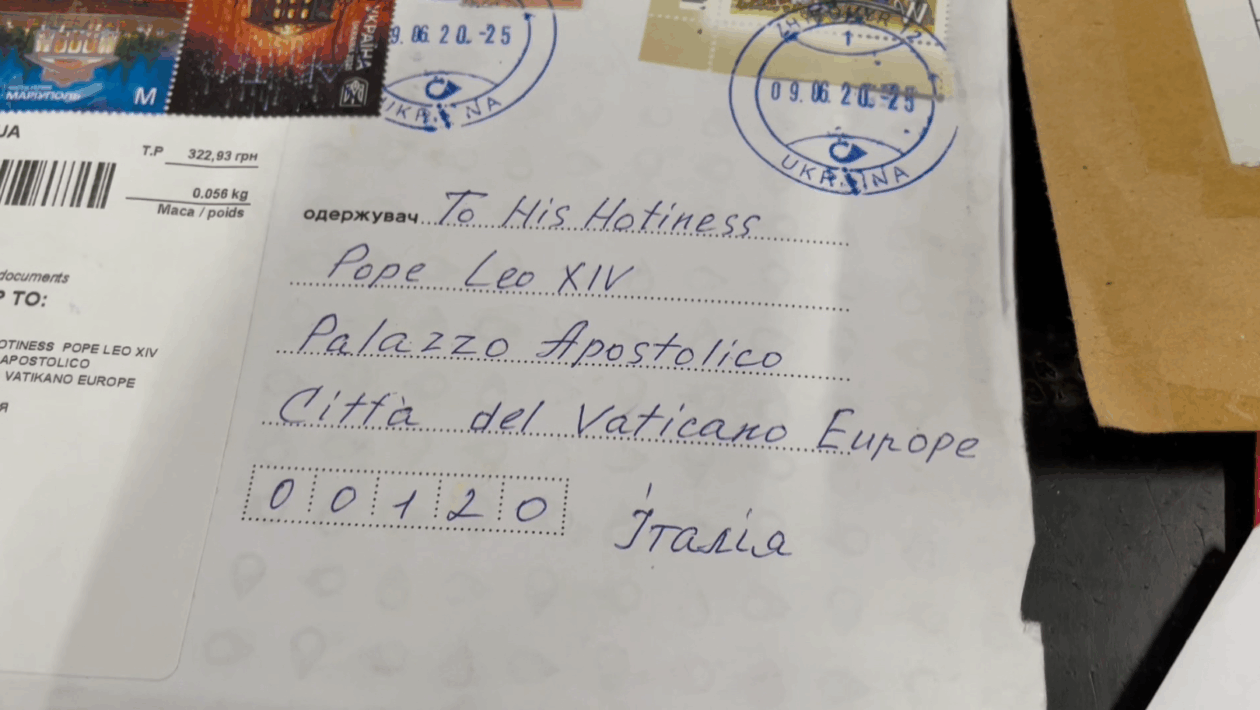 УКРАЇНА
МАРІУПОЛЬ
M
9. 06. 20.-25
UKRAINA
09. 06. 20.-25
UKRAINA
UA
T.P 322,93 грн
0.056 kg
Maca / poids
documents
TO:
OTINESS POPE LEO XIV
APOSTOLICO
VATIKANO EUROPE
одержувач To His Hotiness
Pope Leo XIV
Palazzo Apostolico
Città del Vaticano Europe
00120
Італія